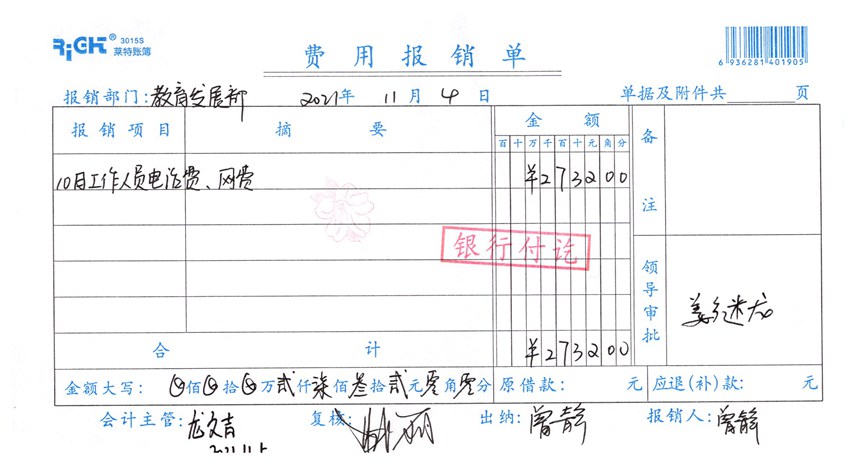 RiGHT® 3015S
莱特账簿
费用报销单
6 936281 401905
报销部门:教育发展部 2021年 11月 4日 单据及附件共 页
报销项目 摘要 金额 备注
百十万千百十元角分
10月工作人员电话费、网费 ¥273200
银行付讫
领导审批
合计 ¥273200
金额大写: 佰 拾 万贰仟柒佰叁拾贰元零角零分 原借款: 元 应退(补)款: 元
会计主管:龙文吉 复核: 出纳:曾静 报销人:曾静